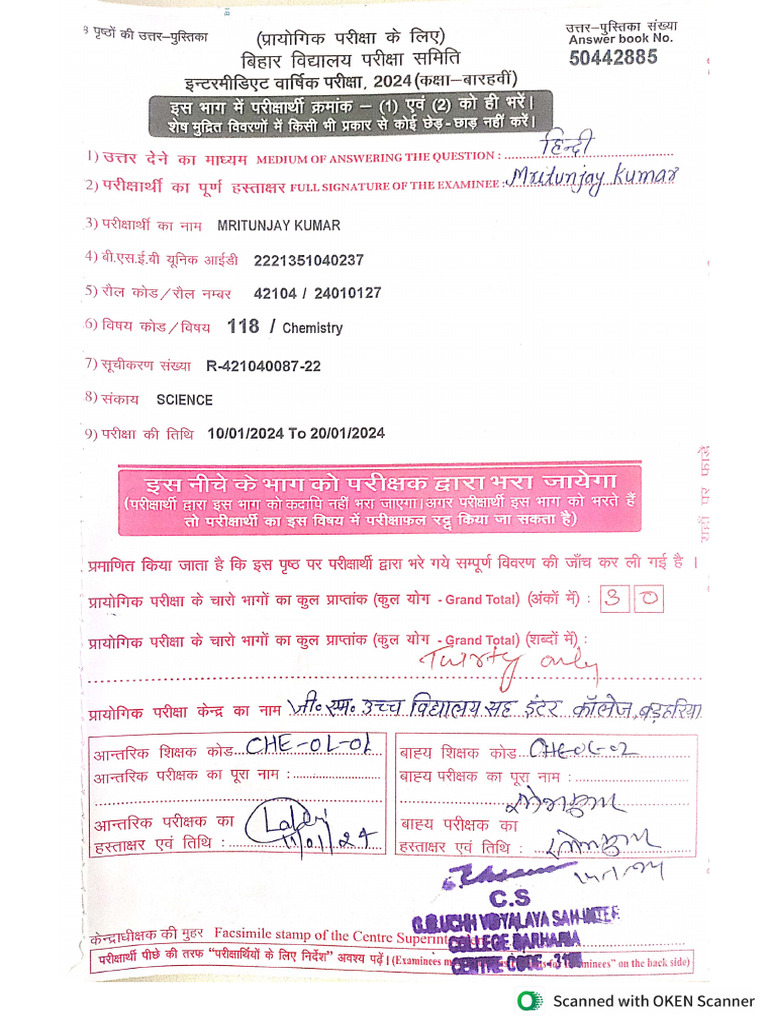 8 पृष्ठों की उत्तर-पुस्तिका
(प्रायोगिक परीक्षा के लिए)
बिहार विद्यालय परीक्षा समिति
इन्टरमीडिएट वार्षिक परीक्षा, 2024 (कक्षा-बारहवीं)
उत्तर-पुस्तिका संख्या
Answer book No.
50442885
इस भाग में परीक्षार्थी क्रमांक – (1) एवं (2) को ही भरें।
शेष मुद्रित विवरणों में किसी भी प्रकार से कोई छेड़-छाड़ नहीं करें।
1) उत्तर देने का माध्यम MEDIUM OF ANSWERING THE QUESTION : हिन्दी
2) परीक्षार्थी का पूर्ण हस्ताक्षर FULL SIGNATURE OF THE EXAMINEE : Mritunjay Kumar
3) परीक्षार्थी का नाम MRITUNJAY KUMAR
4) बी.एस.ई.बी यूनिक आईडी 2221351040237
5) रौल कोड/रौल नम्बर 42104 / 24010127
6) विषय कोड/विषय 118 / Chemistry
7) सूचीकरण संख्या R-421040087-22
8) संकाय SCIENCE
9) परीक्षा की तिथि 10/01/2024 To 20/01/2024
यहाँ पर फाड़ें
इस नीचे के भाग को परीक्षक द्वारा भरा जायेगा
(परीक्षार्थी द्वारा इस भाग को कदापि नहीं भरा जाएगा। अगर परीक्षार्थी इस भाग को भरते हैं
तो परीक्षार्थी का इस विषय में परीक्षाफल रद्द किया जा सकता है)
प्रमाणित किया जाता है कि इस पृष्ठ पर परीक्षार्थी द्वारा भरे गये सम्पूर्ण विवरण की जाँच कर ली गई है ।
प्रायोगिक परीक्षा के चारो भागों का कुल प्राप्तांक (कुल योग - Grand Total) (अंकों में) : 30
प्रायोगिक परीक्षा के चारो भागों का कुल प्राप्तांक (कुल योग - Grand Total) (शब्दों में) :
only
प्रायोगिक परीक्षा केन्द्र का नाम जी॰ एम॰ उच्च विद्यालय सह इंटर कॉलेज, बड़हरिया
आन्तरिक शिक्षक कोड CHE-01-01
आन्तरिक परीक्षक का पूरा नाम :
आन्तरिक परीक्षक का
हस्ताक्षर एवं तिथि : 11/01/24
बाह्य शिक्षक कोड CHE-01-02
बाह्य परीक्षक का पूरा नाम :
बाह्य परीक्षक का
हस्ताक्षर एवं तिथि :
C.S
G.M.UCHH VIDYALAYA SAH-INTER
COLLEGE BARHARIA
CENTRE CODE
केन्द्राधीक्षक की मुहर Facsimile stamp of the Centre Superint
परीक्षार्थी पीछे की तरफ "परीक्षार्थियों के लिए निर्देश" अवश्य पढ़ें। (Examinees on the back side)
Scanned with OKEN Scanner